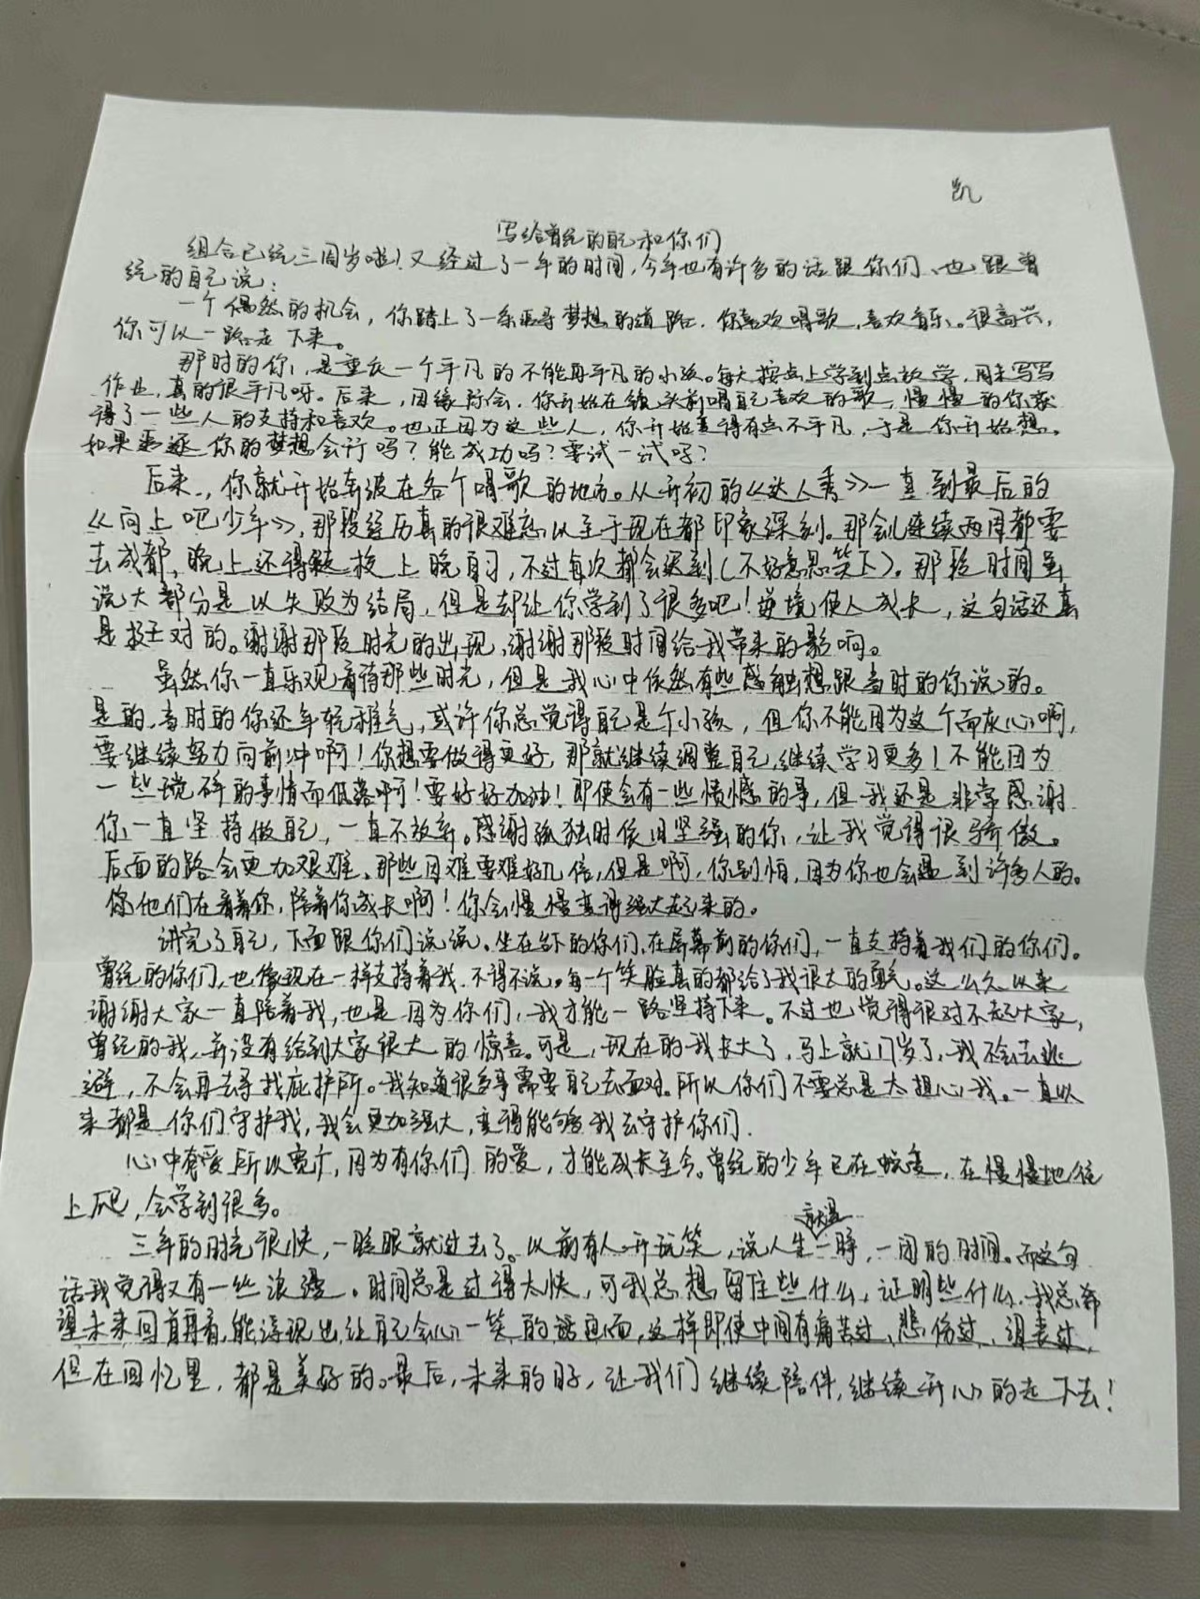 凯
写给曾经的自己和你们
组合已经三周岁啦！又经过了一年的时间，今年也有许多的话跟你们、也跟曾
经的自己说：
一个偶然的机会，你踏上了一条追寻梦想的道路。你喜欢唱歌，喜欢音乐。很高兴，
你可以一路走下来。
那时的你，是重庆一个平凡的不能再平凡的小孩。每天按点上学到点放学，周末写写
作业，真的很平凡呀。后来，因缘际会，你开始在镜头前唱自己喜欢的歌，慢慢的你获
得了一些人的支持和喜欢。也正因为这些人，你开始变得有点不平凡，于是你开始想。
如果追逐你的梦想会行吗？能成功吗？要试一试吗？
后来，你就开始奔波在各个唱歌的地方。从开初的《达人秀》一直到最后的
《向上吧少年》，那段经历真的很难忘以至于现在都印象深刻。那会儿连续两周都要
去成都，晚上还得赶 校上晚自习，不过每次都会迟到（不好意思笑下）。那段时间虽
说大部分是以失败为结局，但是却让你学到了很多吧！逆境使人成长，这句话还真
是挺对的。谢谢那段时光的出现，谢谢那段时间给我带来的影响。
虽然你一直乐观看待那些时光，但是我心中依然有些感触想跟当时的你说的。
是的，当时的你还年轻稚气，或许你总觉得自己是个小孩，但你不能因为这个而灰心啊，
要继续努力向前冲啊！你想要做得更好，那就继续调整自己，继续学习更多！不能因为
一些琐碎的事情而低落啊！要好好加油！即使会有一些愤憾的事，但我还是非常感谢
你一直坚持做自己，一直不放弃。感谢孤独时侯 坚强的你，让我觉得很骄傲。
后面的路会更加艰难，那些困难要难好几倍，但是啊，你别怕，因为你也会遇到许多人的。
你他们在看着你，陪着你成长啊！你会慢慢变得强大起来的。
讲完了自己，下面跟你们说说。坐在台下的你们，在屏幕前的你们，一直支持着我们的你们。
曾经的你们，也像现在一样支持着我，不得不说。每一个笑脸真的都给了我很大的勇气。这么久以来
谢谢大家一直陪着我，也是因为你们，我才能一路坚持下来。不过也觉得很对不起大家，
曾经的我，并没有给到大家很大的惊喜。可是，现在的我长大了，马上就17岁了，我不会去逃
避，不会再去寻找庇护所。我知道很多事需要自己去面对。所以你们不要总是太担心我。一直以
来都是你们守护我，我会更加强大，变得能够我去守护你们．
心中有爱 所以宽广，因为有你们的爱，才能成长至今。曾经的少年已在蜕变，在慢慢地往
上爬，会学到很多。
三年的时光很快，一眨眼就过去了。以前有人开玩笑，说人生就是一睁，一闭的时间。而这句
话我觉得又有一丝浪漫。时间总是过得太快，可我总想留住些什么，证明些什么。我总希
望未来回首再看，能浮现出让自己会心一笑的 画面，这样即使中间有痛苦过，悲伤过，沮丧过，
但在回忆里，都是美好的。最后，未来的日子，让我们继续陪伴，继续开心的走下去！